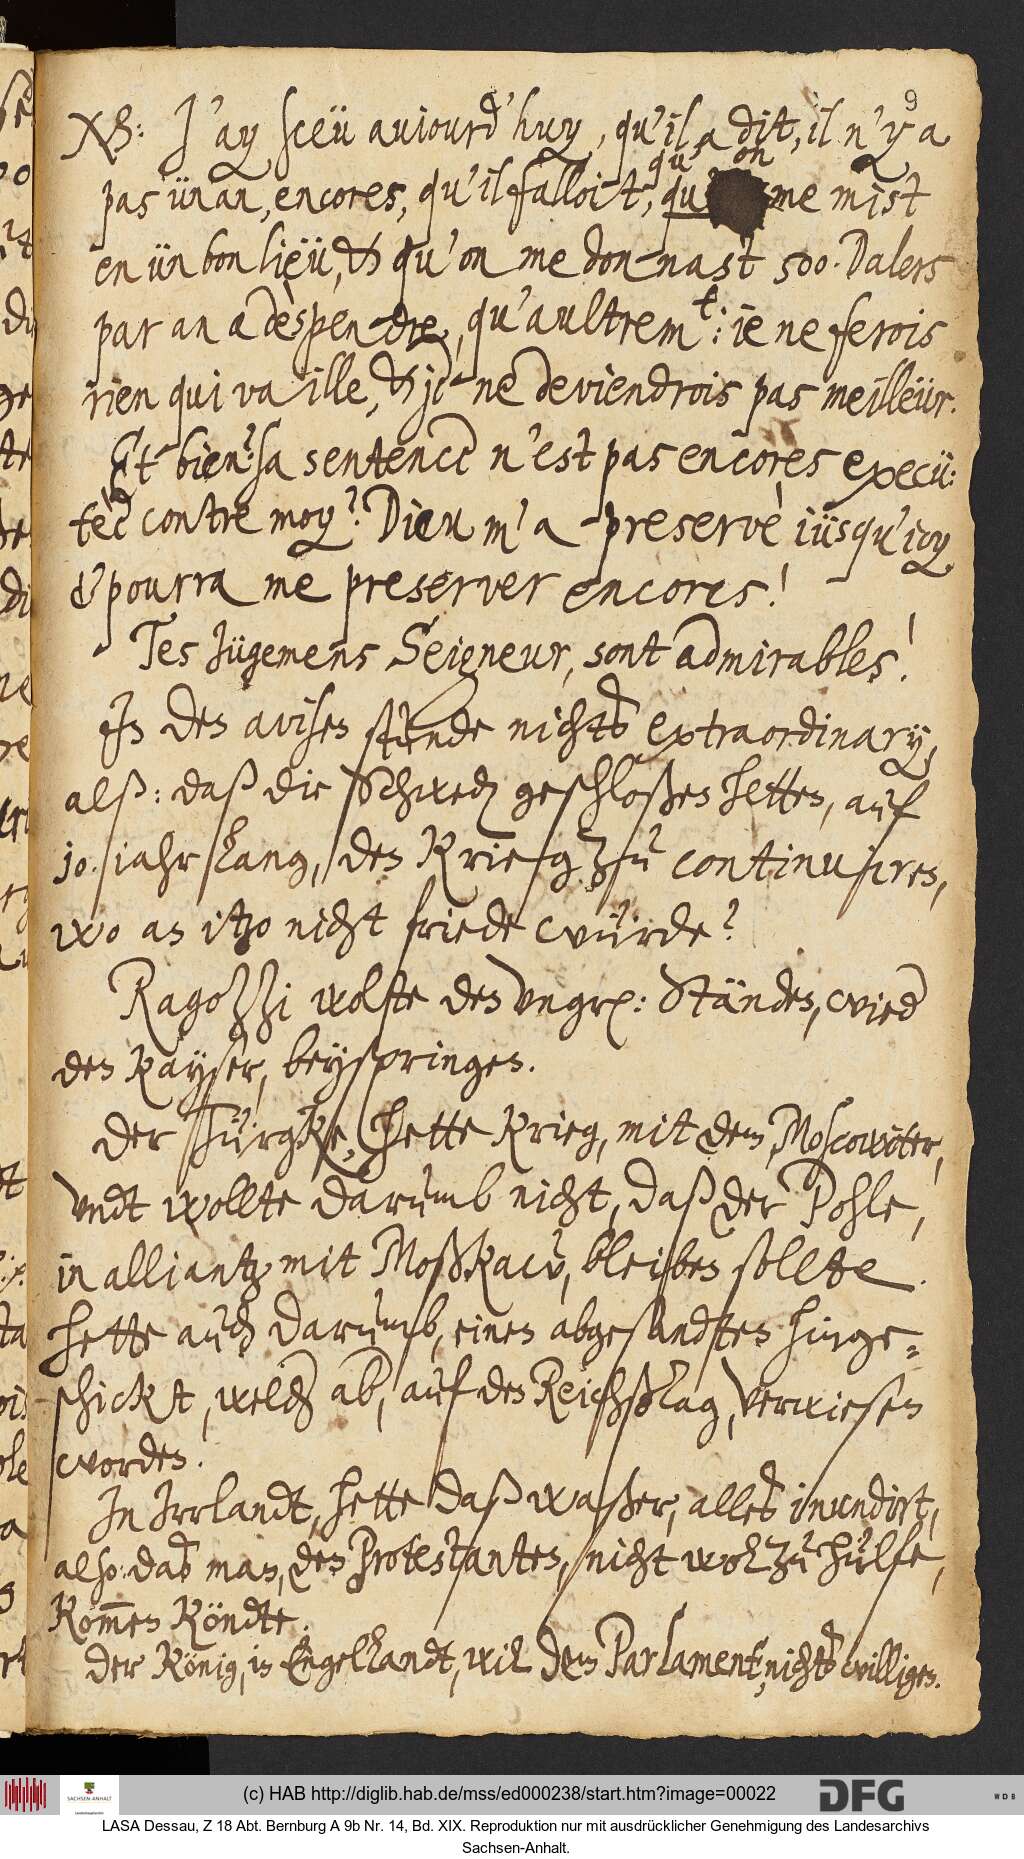 9
XB: J'ay sceü auiourd'huy, qu'il a dit, il n'y a
pas ün an, encores, qu'il falloit, qu'on me mist
en ün bon lieü, & qu'on me donnast 500. Dalers
par an a despendre, qu'aultrem.t: ie ne ferois
rien qui vaille, & je ne deviendrois pas meilleür.
Et bien? sa sentence n'est pas encores execü:
tée contre moy? Dieu m'a preservè iüsqu'icy
& pourra me preserver encores!
Tes Jügemens Seigneur, sont admirables!
In den avisen stünde nichts extraordinary,
alß: daß die Schweden geschloßen hetten, auf
10. iahr lang, den Krieg zu continuiren,
wo an itzo nicht friede würde?
Ragozzi wolte den Vngrischen: Ständen, wieder
den Kayser, beyspringen.
Der Türgke, hette Krieg, mit dem Moscowiter,
vndt wollte darumb nicht, daß der Pohle,
in alliantz mit Moßkaw, bleiben sollte.
Hette auch darumb, einen abgesandten hinge=
schickt, welcher aber, auf den Reichßtag, verwiesen
worden.
In Irrlandt, hette daß waßer, alles inundirt,
also: das man, den Protestanten, nicht wol zu hülfe,
kommen köndte.
Der König, in Engellandt, will dem Parlament, nichts willigen.
(c) HAB http://diglib.hab.de/mss/ed000238/start.htm?image=00022
SACHSEN-ANHALT
DFG
WDB
LASA Dessau, Z 18 Abt. Bernburg A 9b Nr. 14, Bd. XIX. Reproduktion nur mit ausdrücklicher Genehmigung des Landesarchivs
Sachsen-Anhalt.